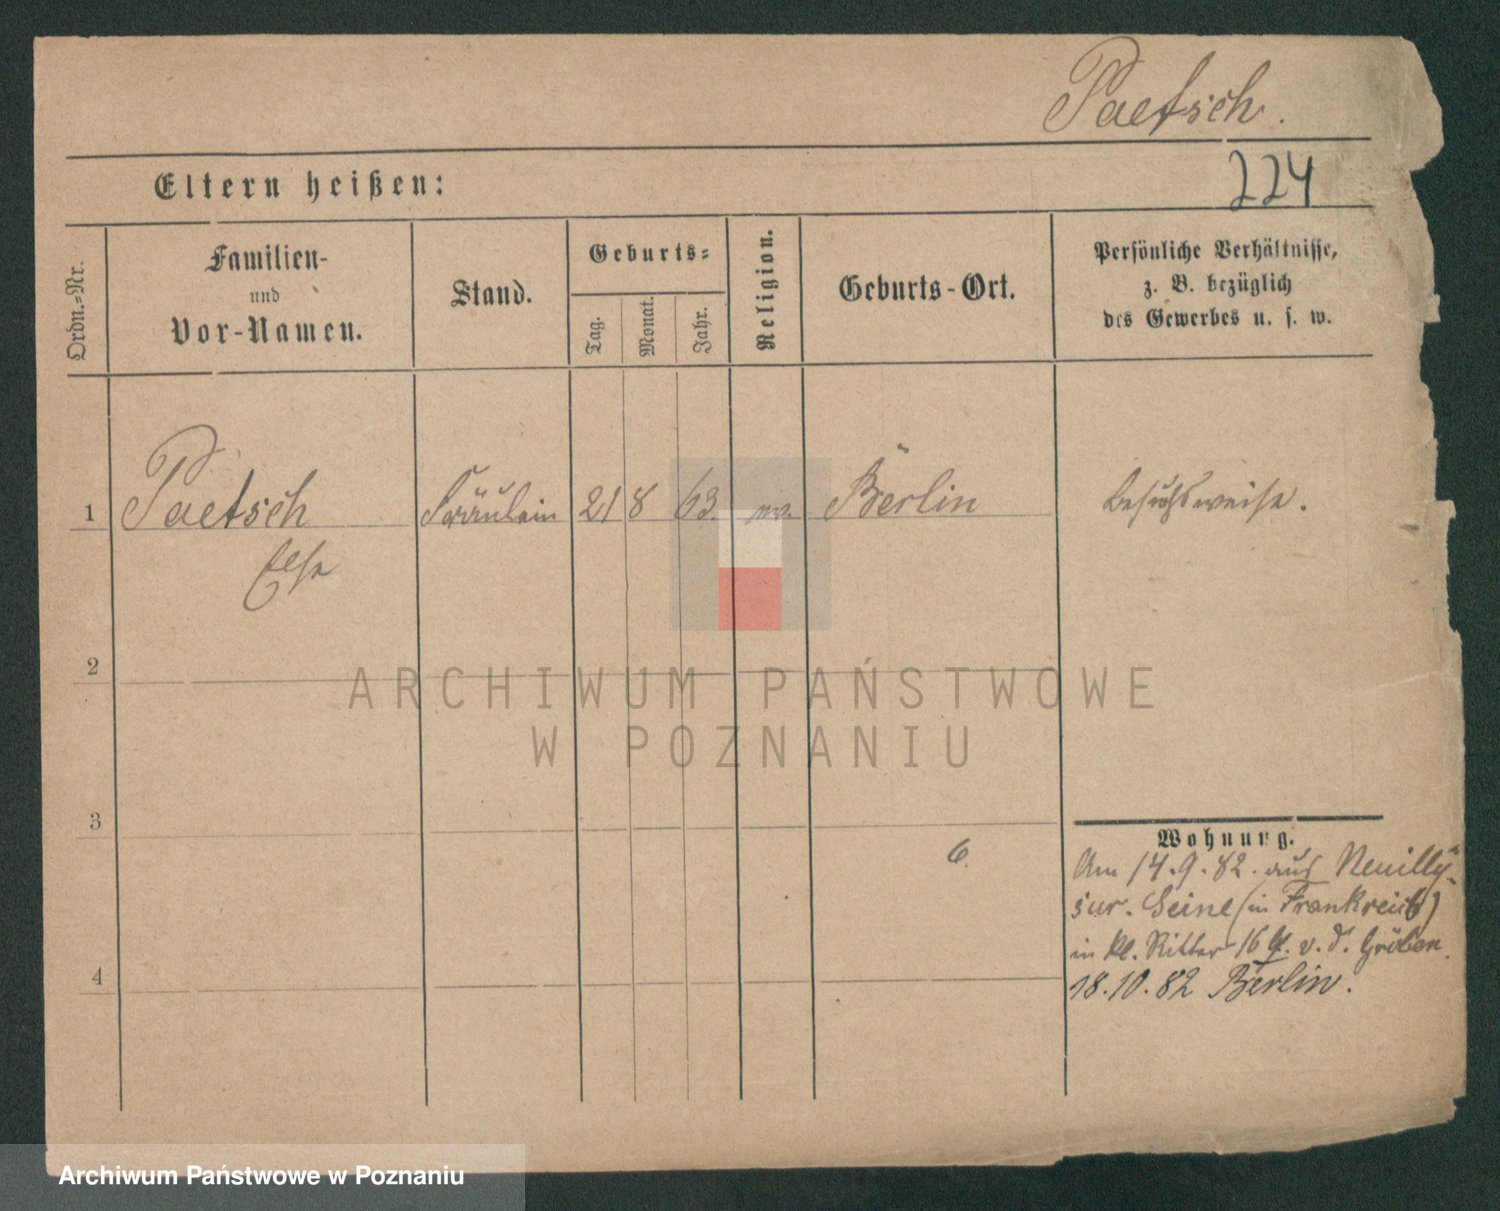 Paetsch.
224
Eltern heißen:
Ordn.=Nr.
Familien-
und
Vor-Namen.
Stand.
Geburts=
Tag.
Monat.
Jahr.
Religion.
Geburts-Ort.
Persönliche Verhältnisse,
z. B. bezüglich
des Gewerbes u. s. w.
1 Paetsch Fräulein 21 8 63. ev. Berlin besuchsweise.
Else
2
3
6
4
Wohnung.
Am 14.9.82. aus Neuilly-
sur. Seine (in Frankreich)
in kl. Ritter 16 v. d. Gröben.
18.10.82 Berlin.
ARCHIWUM PAŃSTWOWE
W POZNANIU
Archiwum Państwowe w Poznaniu